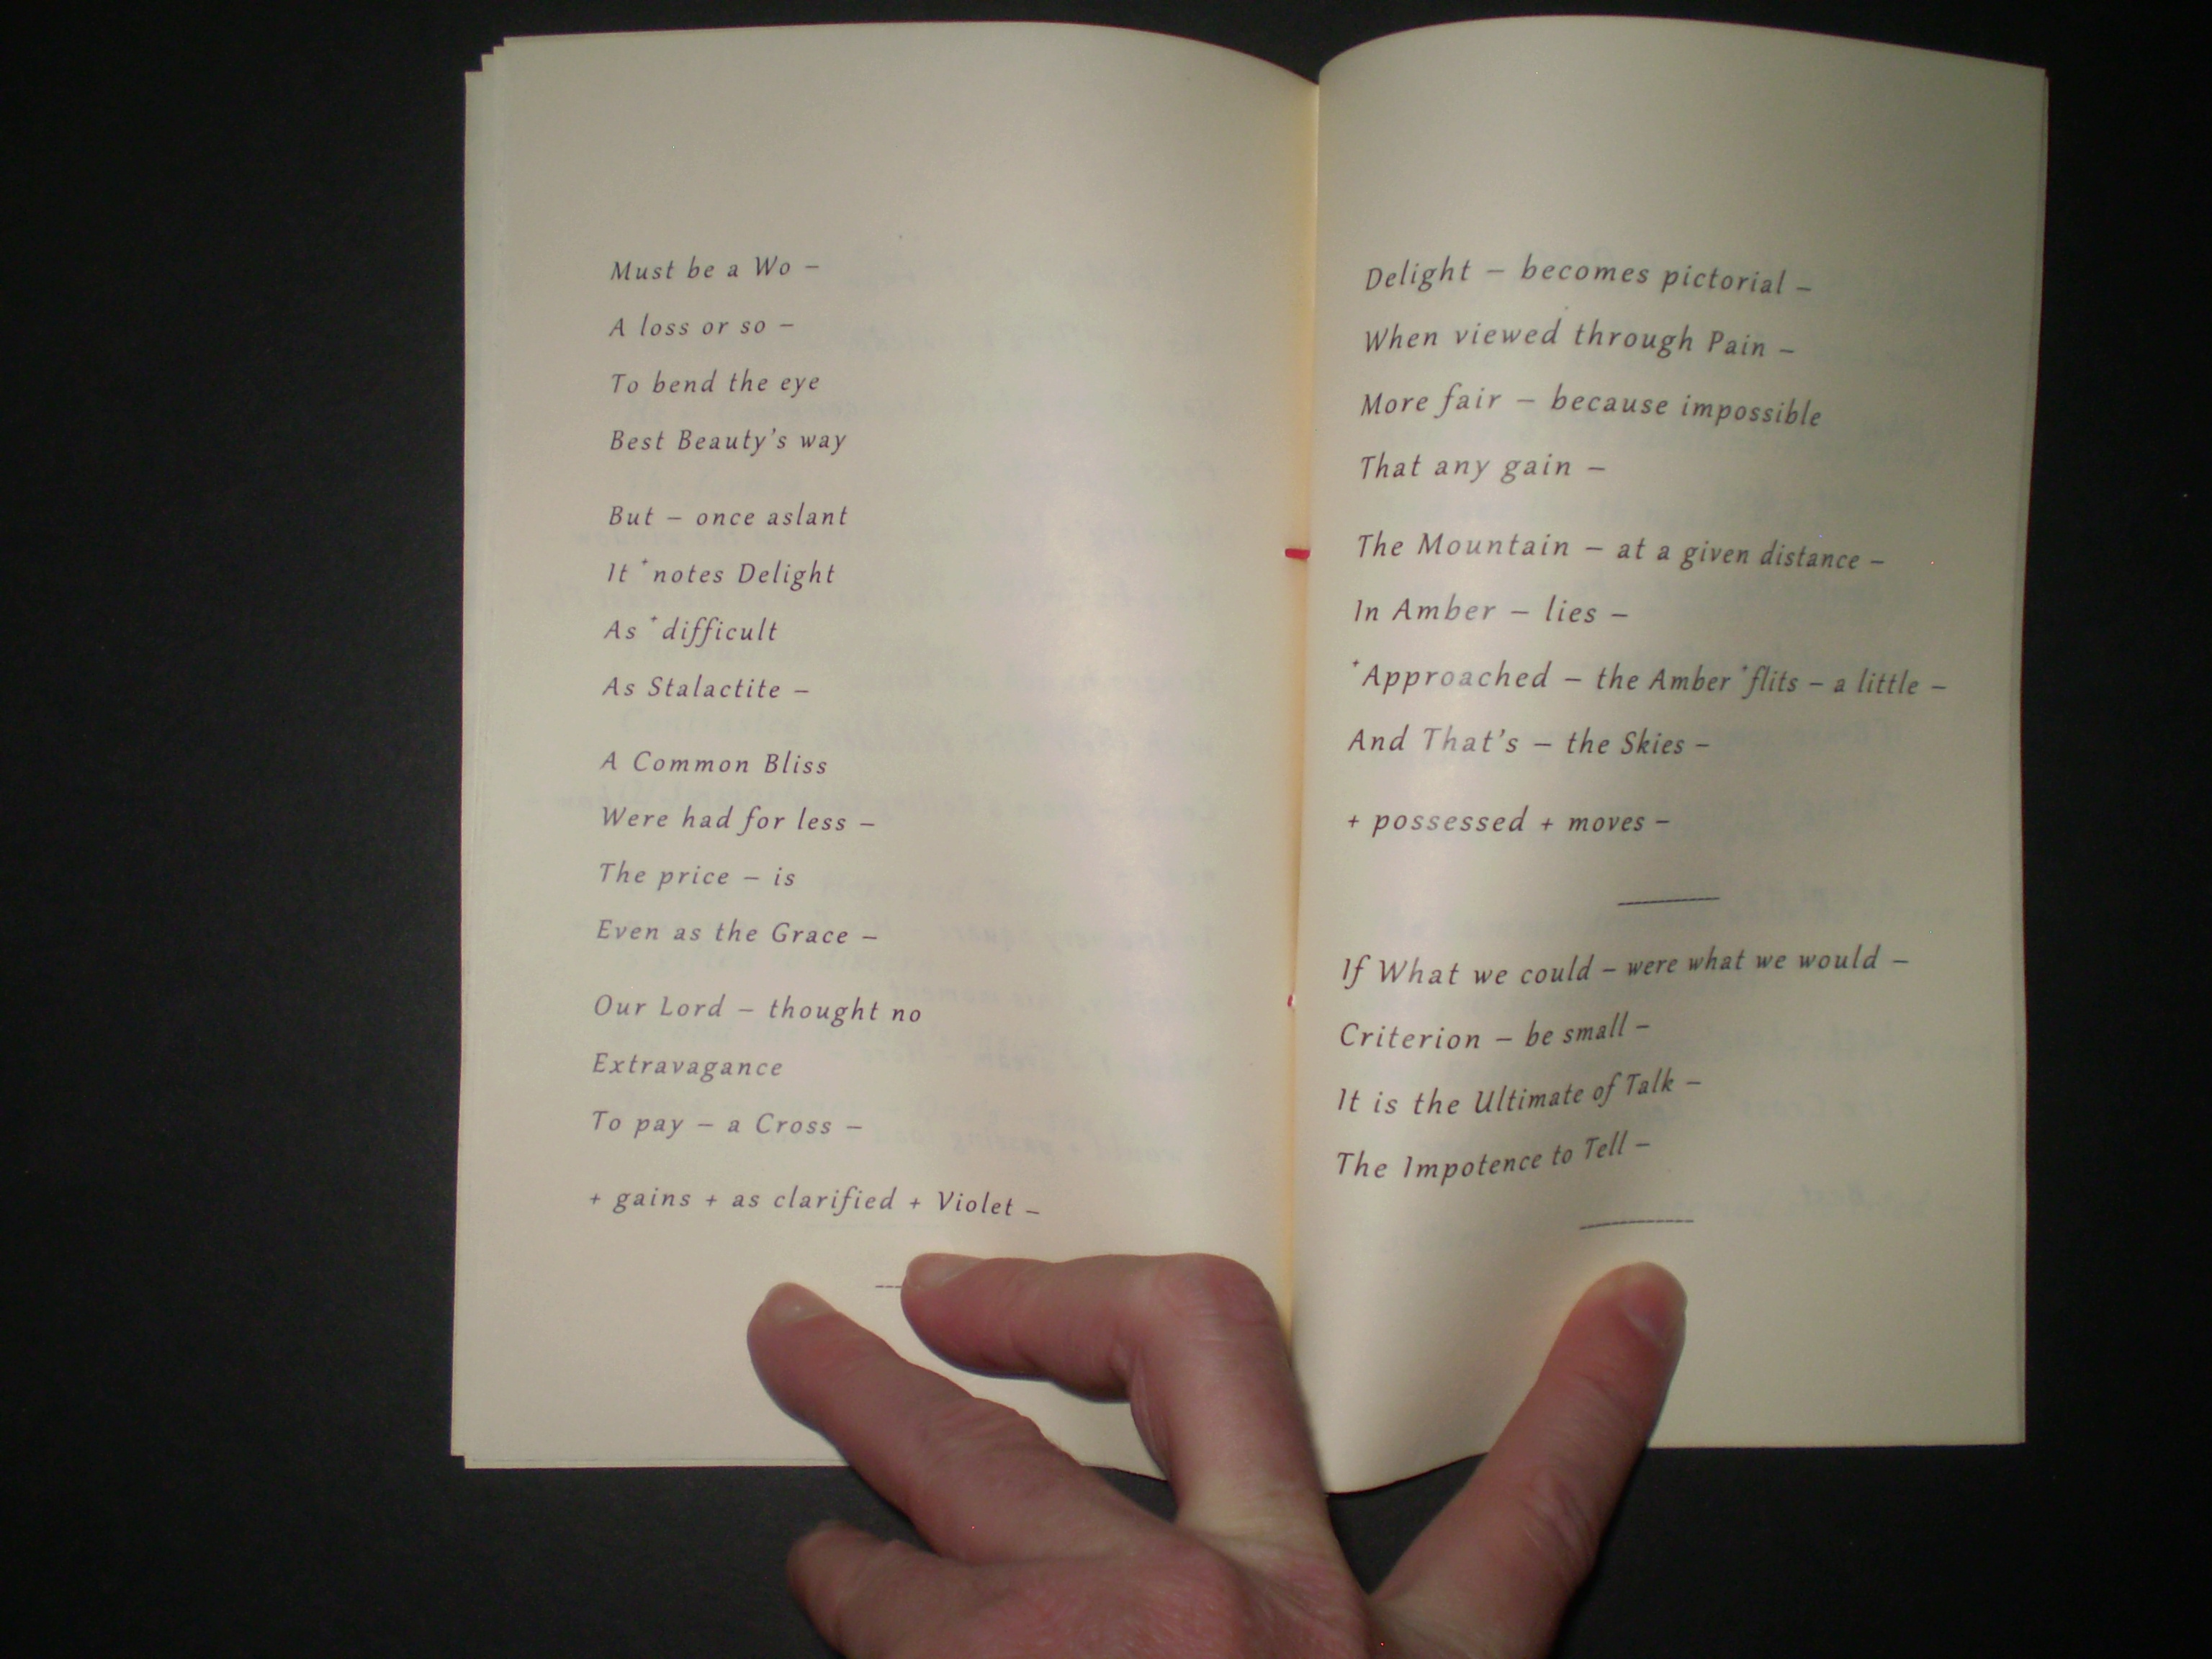 Must be a Wo –
A loss or so –
To bend the eye
Best Beauty's way
But – once aslant
It +notes Delight
As +difficult
As Stalactite –
A Common Bliss
Were had for less –
The price – is
Even as the Grace –
Our Lord – thought no
Extravagance
To pay – a Cross –
+ gains + as clarified + Violet –
Delight – becomes pictorial –
When viewed through Pain –
More fair – because impossible
That any gain –
The Mountain – at a given distance –
In Amber – lies –
+Approached – the Amber +flits – a little –
And That's – the Skies –
+ possessed + moves –
If What we could – were what we would –
Criterion – be small –
It is the Ultimate of Talk –
The Impotence to Tell –